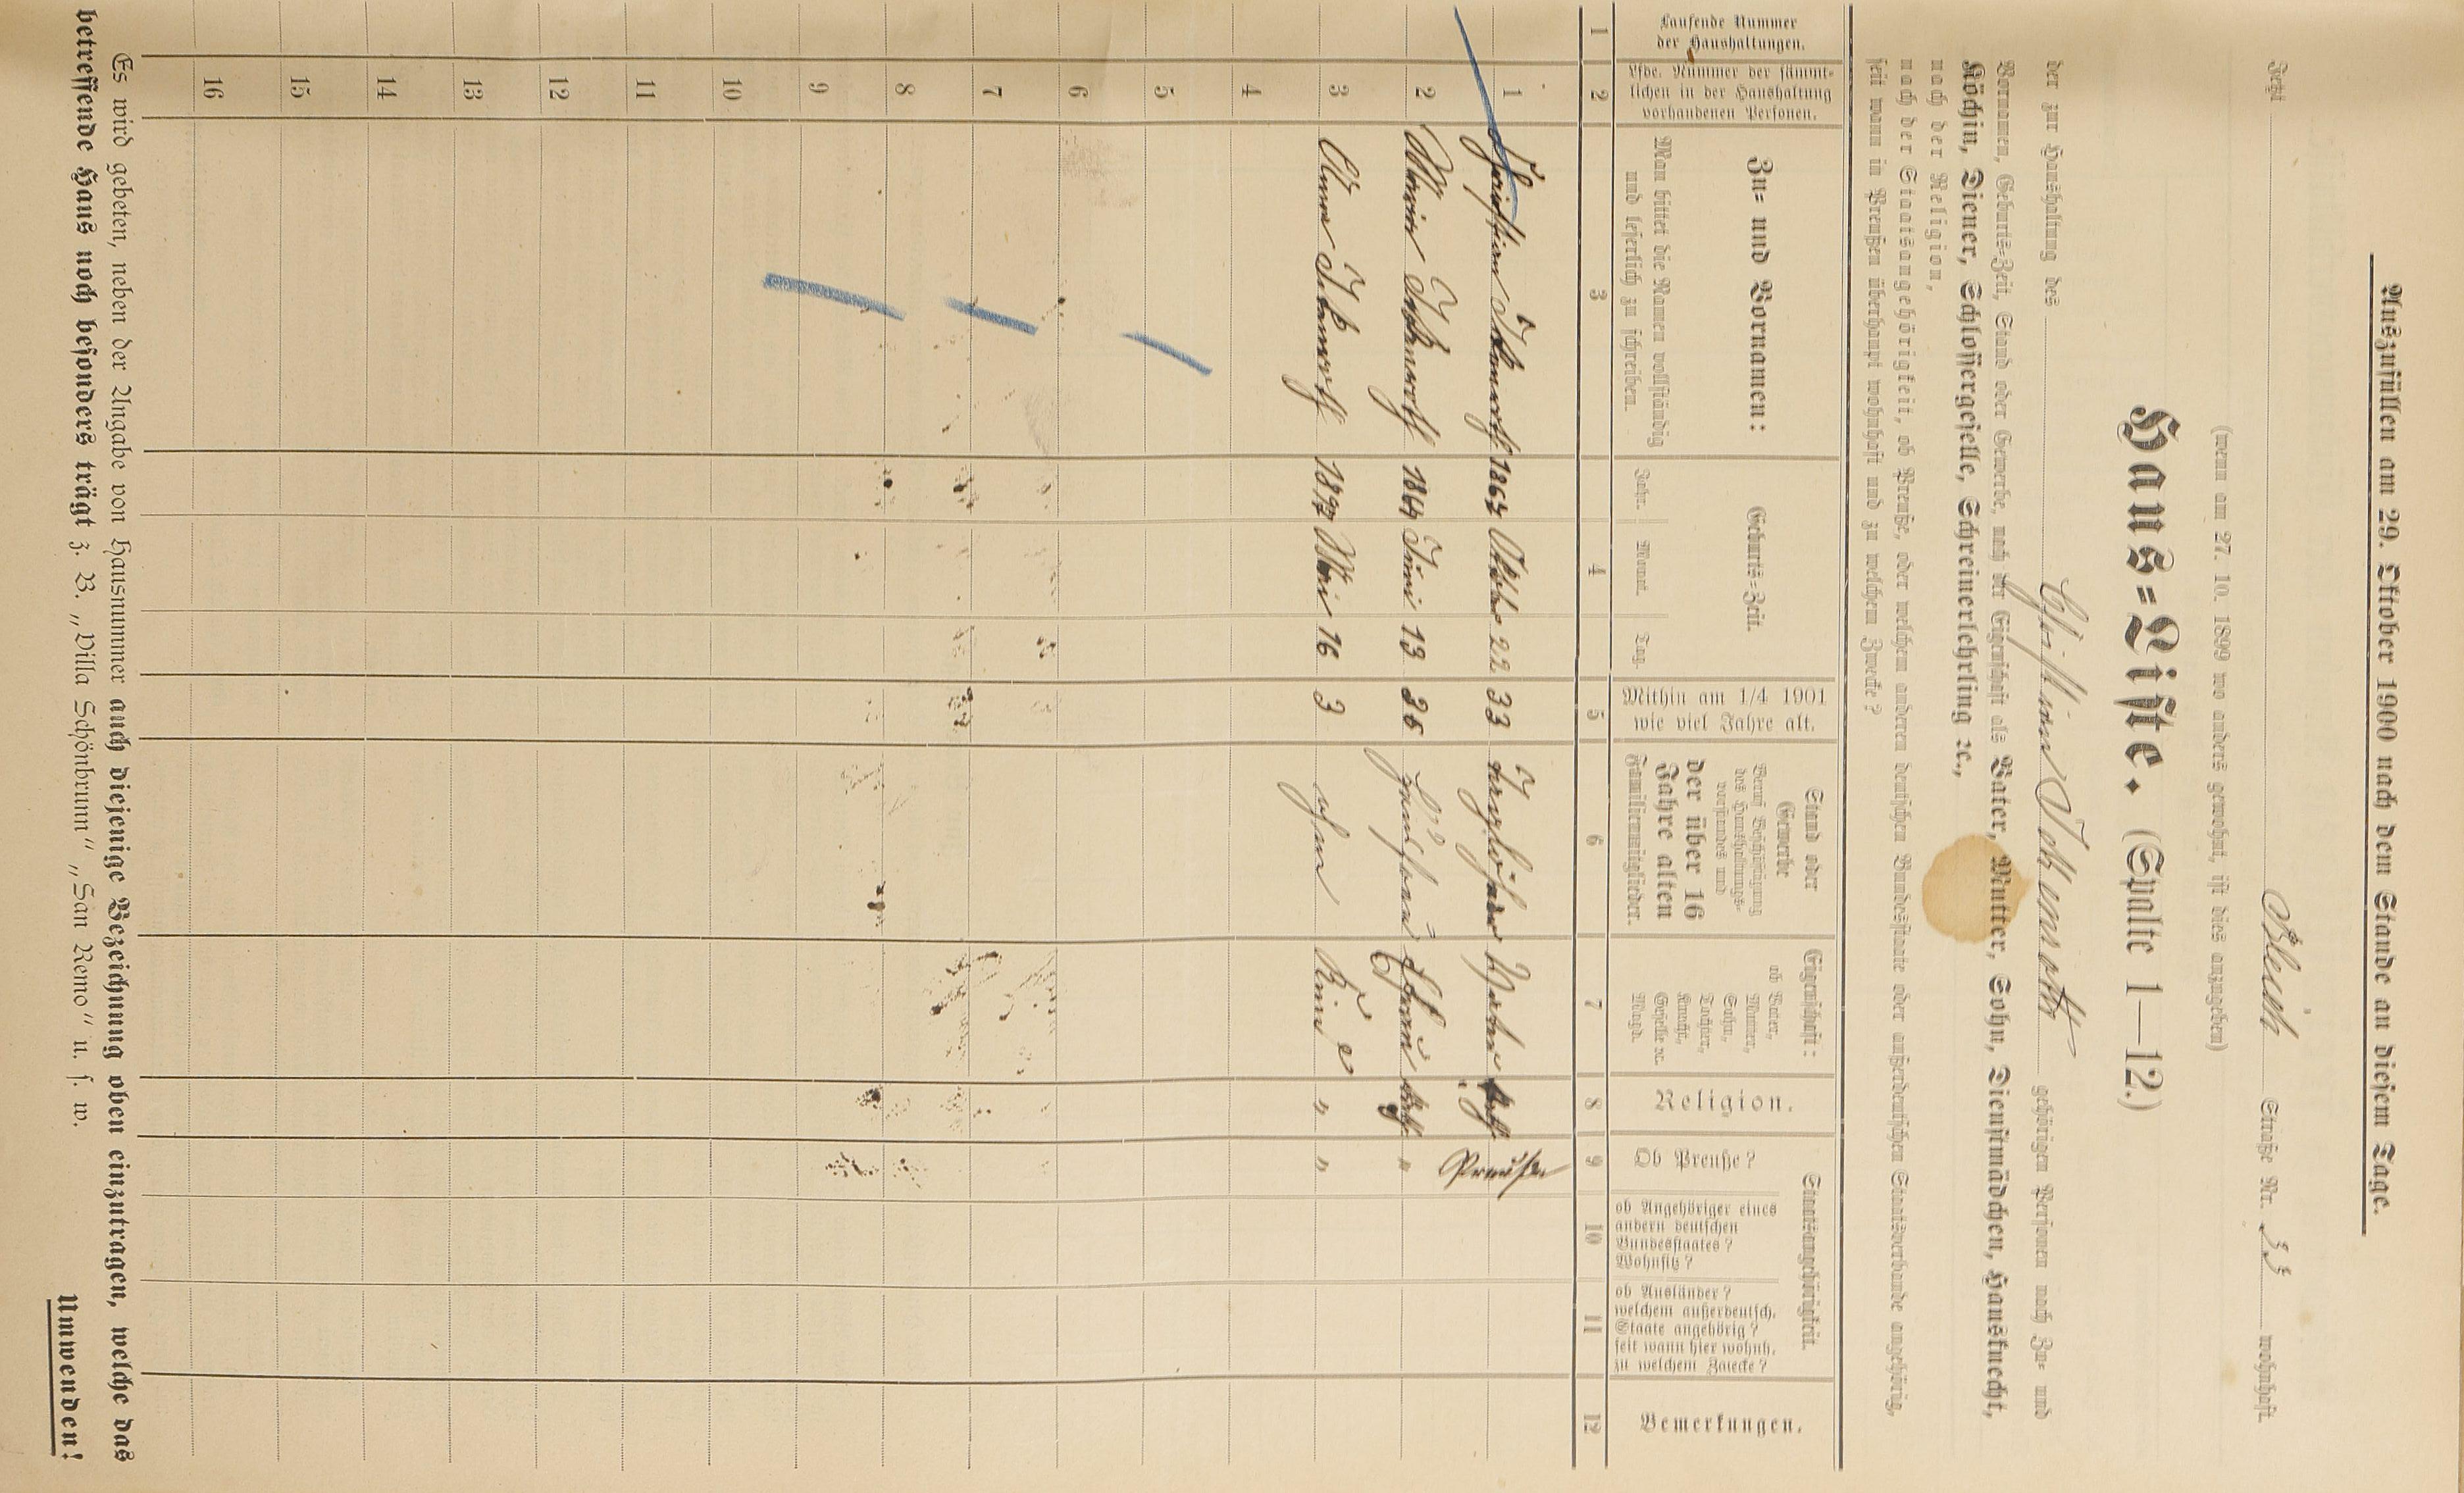 Auszufüllen am 29. Oktober 1900 nach dem Stande an diesem Tage.
Jetzt Bleich Straße Nr. 33 wohnhaft.
(wenn am 27. 10. 1899 wo anders gewohnt, ist dies anzugeben)
Haus-Liste. (Spalte 1—12.)
der zur Haushaltung des Christian gehörigen Personen nach Zu- und
Vornamen, Geburts-Zeit, Stand oder Gewerbe, nach der Eigenschaft als Vater, Mutter, Sohn, Dienstmädchen, Hausknecht,
Köchin, Diener, Schlossergeselle, Schreinerlehrling ꝛc.,
nach der Religion,
nach der Staatsangehörigkeit, ob Preuße, oder welchem anderen deutschen Bundesstaate oder außerdeutschen Staatsverbande angehörig,
seit wann in Preußen überhaupt wohnhaft und zu welchem Zwecke?
Laufende Nummer
der Haushaltungen.
Lfde. Nummer der sämmt-
lichen in der Haushaltung
vorhandenen Personen.
Zu- und Vornamen:
Man bittet die Namen vollständig
und leserlich zu schreiben.
Geburts-Zeit.
Jahr. Monat. Tag.
Mithin am 1/4 1901
wie viel Jahre alt.
Stand oder
Gewerbe
Beruf Beschäftigung
des Haushaltungs-
vorstandes und
der über 16
Jahre alten
Familienmitglieder.
Eigenschaft:
ob Vater,
Mutter,
Sohn,
Tochter,
Knecht,
Geselle ꝛc.
Magd.
Religion.
Staatsangehörigkeit.
Ob Preuße?
ob Angehöriger eines
andern deutschen
Bundesstaates?
Wohnsitz?
ob Ausländer?
welchem außerdeutsch.
Staate angehörig?
seit wann hier wohnh.
zu welchem Zwecke?
Bemerkungen.
1 2 3 4 5 6 7 8 9 10 11 12
1 Christian Oktober 22 33 Taglöhner Vater kath Preuße
2 Maria Juni 13 36 Ehefrau kath "
3 Anna Mai 16 3 ohne Kind " "
4
5
6
7
8
9
10
11
12
13
14
15
16
Es wird gebeten, neben der Angabe von Hausnummer auch diejenige Bezeichnung oben einzutragen, welche das
betreffende Haus noch besonders trägt z. B. „Villa Schönbrunn“ „San Remo“ u. s. w.
Umwenden!